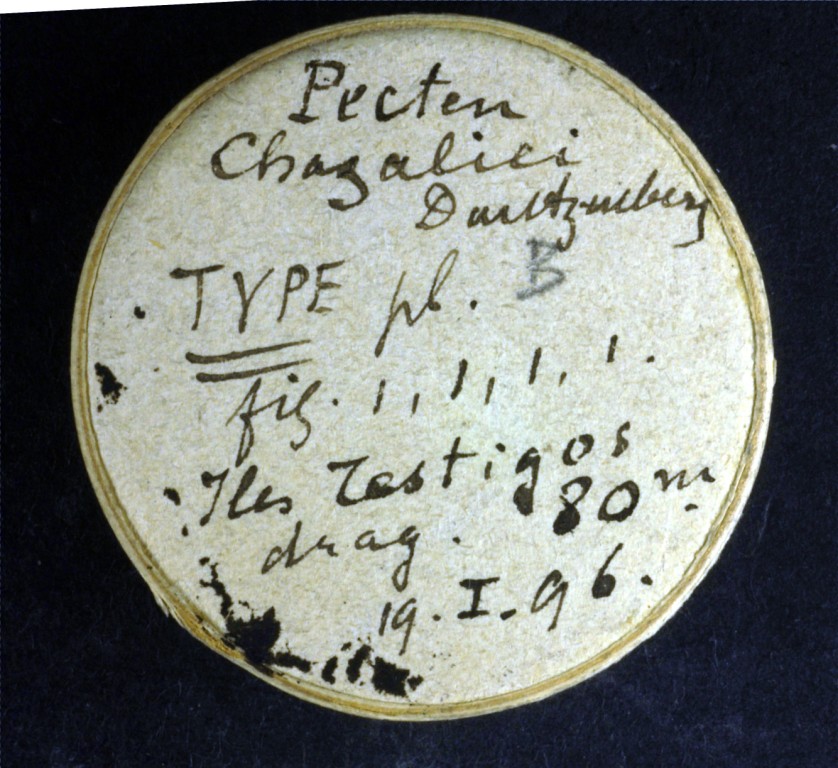 Pecten
Chazaliei
Dautzenberg
TYPE pl. B
fig. 1, 1, 1, 1.
Iles Testigos
drag. 80 m.
19. I. 96.